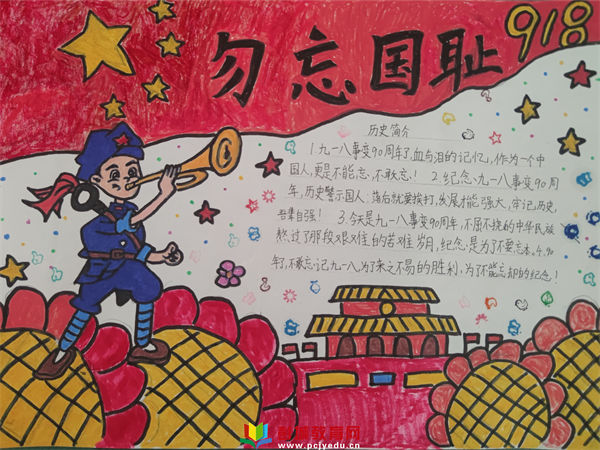 勿忘国耻
918
历史简介
1.九一八事变90周年了,血与泪的记忆,作为一个中
国人,更是不能忘,不敢忘! 2.纪念九一八事变90周
年,历史警示国人:落后就要挨打,发展才能强大,牢记历史,
吾辈自强! 3.今天是九一八事变90周年,不屈不挠的中华民族
熬过了那段艰难的苦难岁月,纪念是为了不要忘本。4.90
年了,不敢忘记九一八,为了来之不易的胜利,为了不能忘却的纪念!
教育网
www.pcjyedu.cn